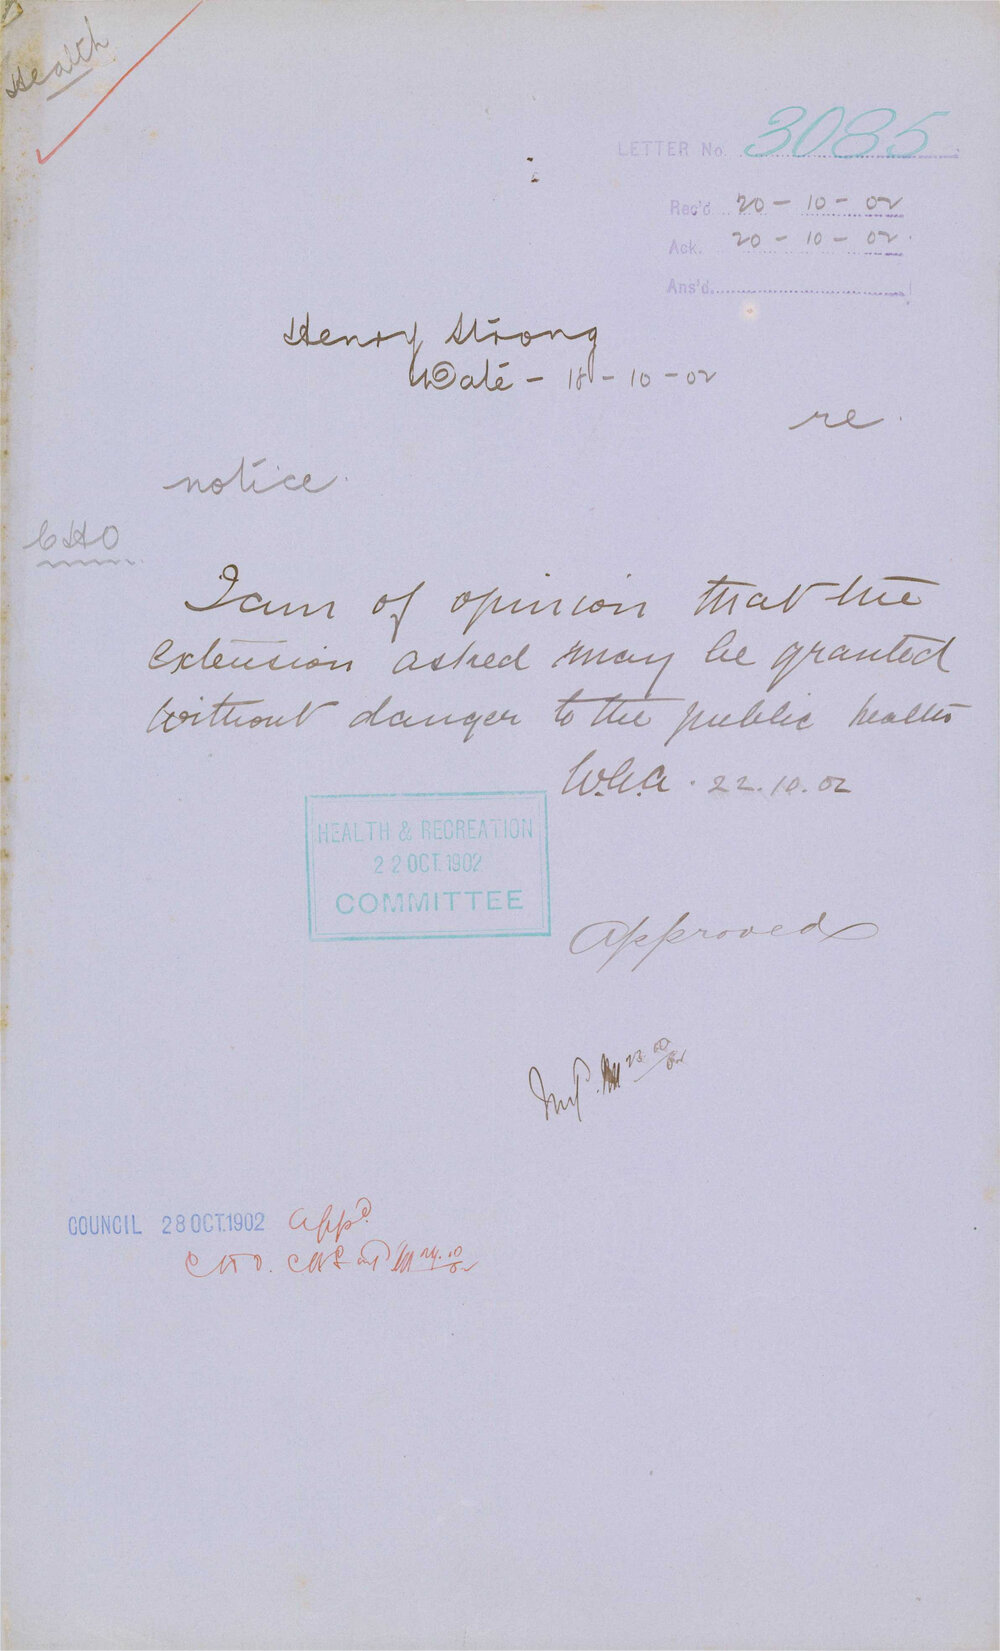 Health
LETTER No 3085
Rec'd 20-10-02
Ack. 20-10-02
Ans'd
Henry Strong
Date - 18-10-02
re
notice.
CHO
I am of opinion that the
extension asked may be granted
without danger to the public health
22.10.02
HEALTH & RECREATION
22 OCT. 1902
COMMITTEE
Approved
COUNCIL 28 OCT. 1902 Appd.
CHO.